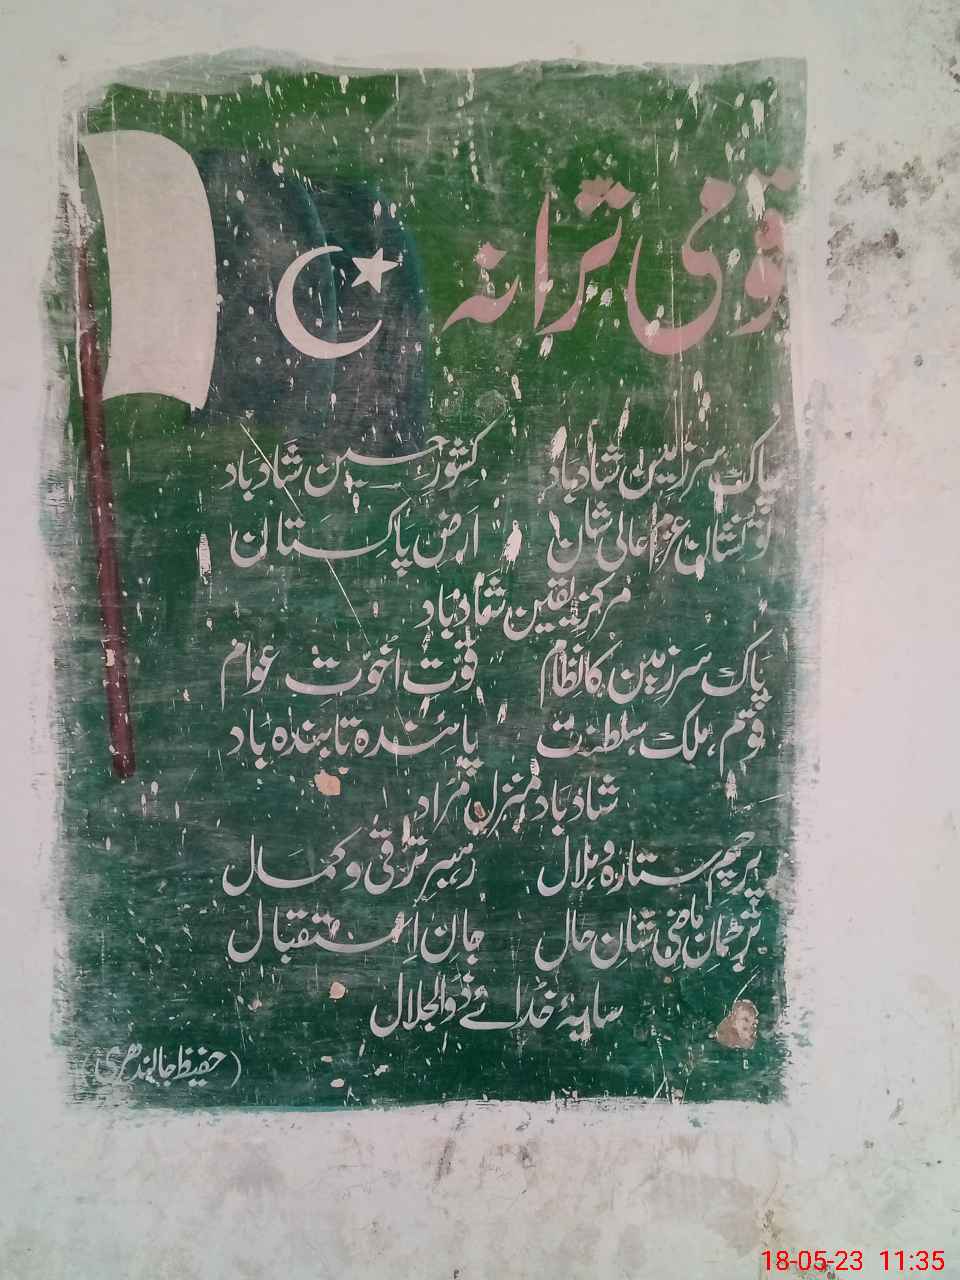 قومی ترانہ
پاک سرزمین شاد باد کشورِ حسین شاد باد
تو نشانِ عزمِ عالی شان ارضِ پاکستان
مرکزِ یقین شاد باد
پاک سرزمین کا نظام قوّتِ اخوّتِ عوام
قوم، ملک، سلطنت پائندہ تابندہ باد
شاد باد منزلِ مراد
پرچمِ ستارہ و ہلال رہبرِ ترقی و کمال
ترجمانِ ماضی شانِ حال جانِ استقبال
سایۂ خدائے ذوالجلال
(حفیظ جالندھری)
18-05-23 11:35